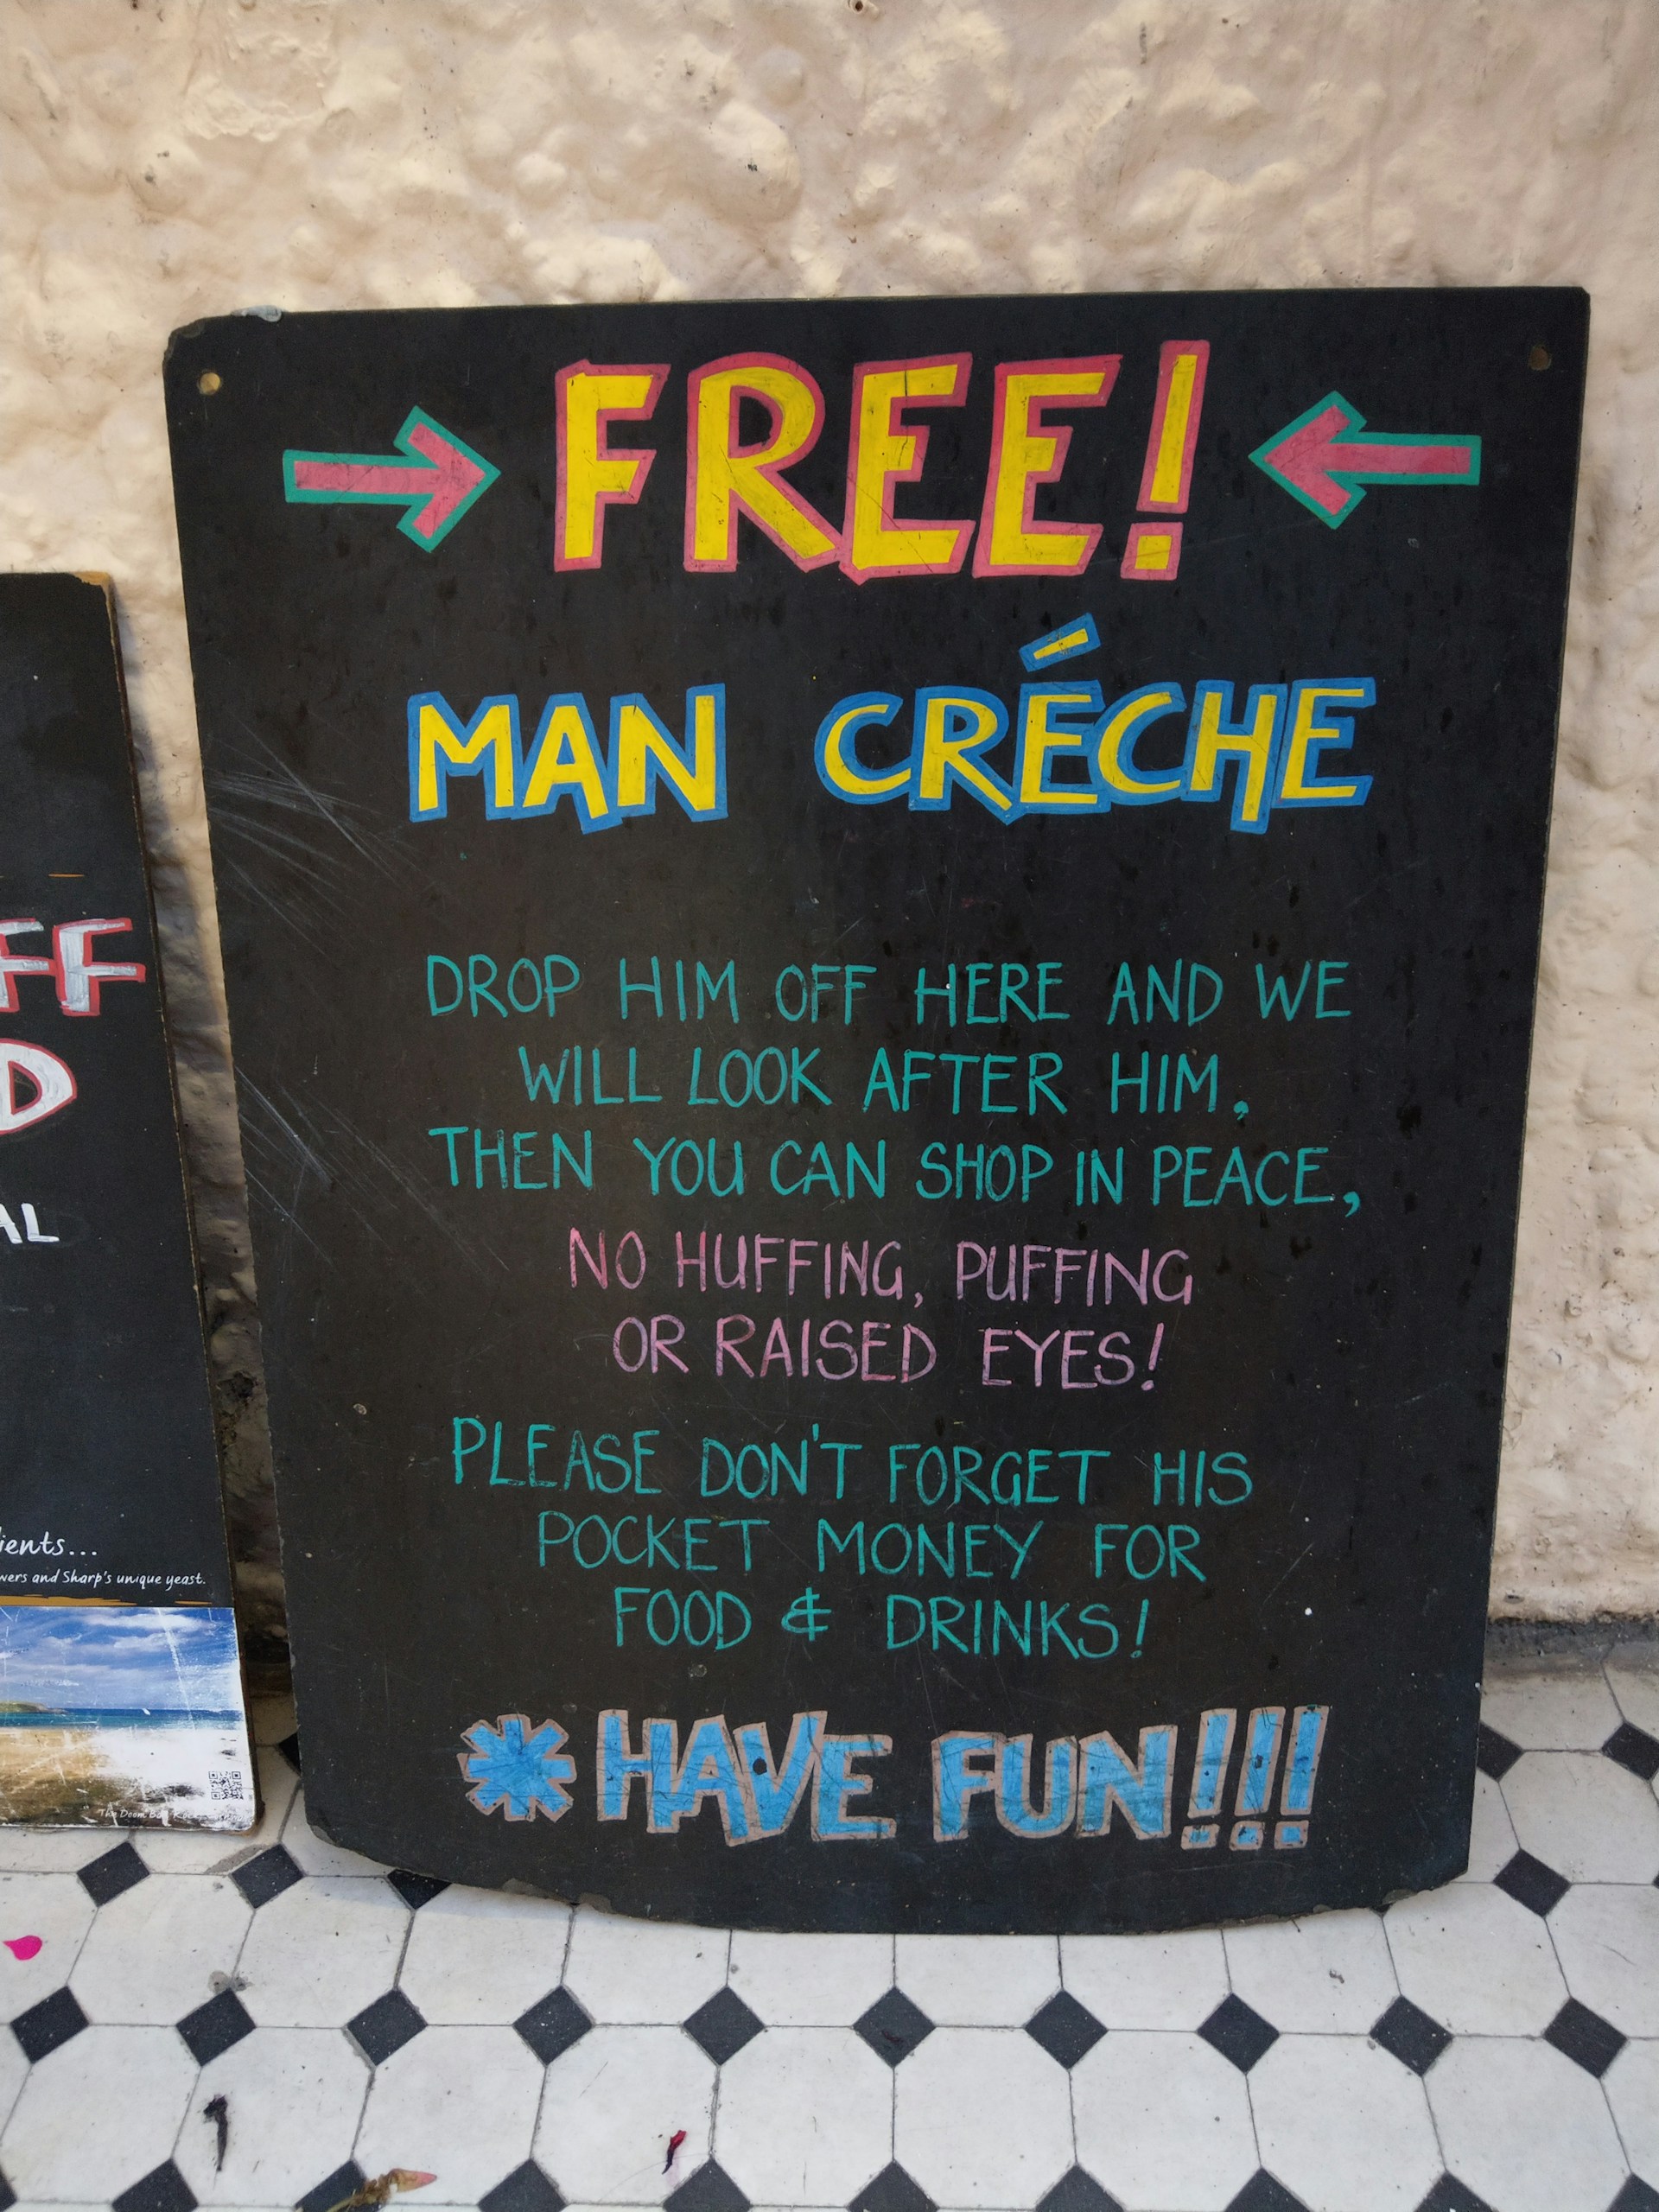 FREE!
MAN CRÉCHE
DROP HIM OFF HERE AND WE
WILL LOOK AFTER HIM,
THEN YOU CAN SHOP IN PEACE,
NO HUFFING, PUFFING
OR RAISED EYES!
PLEASE DON'T FORGET HIS
POCKET MONEY FOR
FOOD & DRINKS!
* HAVE FUN!!!
FF
D
AL
ients...
wers and Sharp's unique yeast.
The Doom Bar